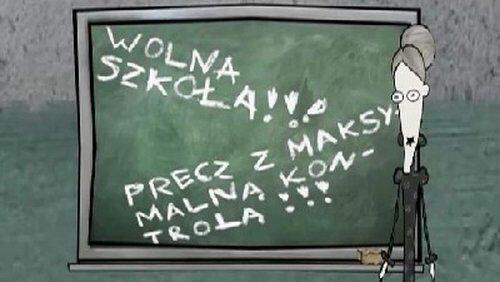 WOLNA
SZKOŁĄ!!!
PRECZ Z MAKSY-
MALNA KON-
TROLA !!!